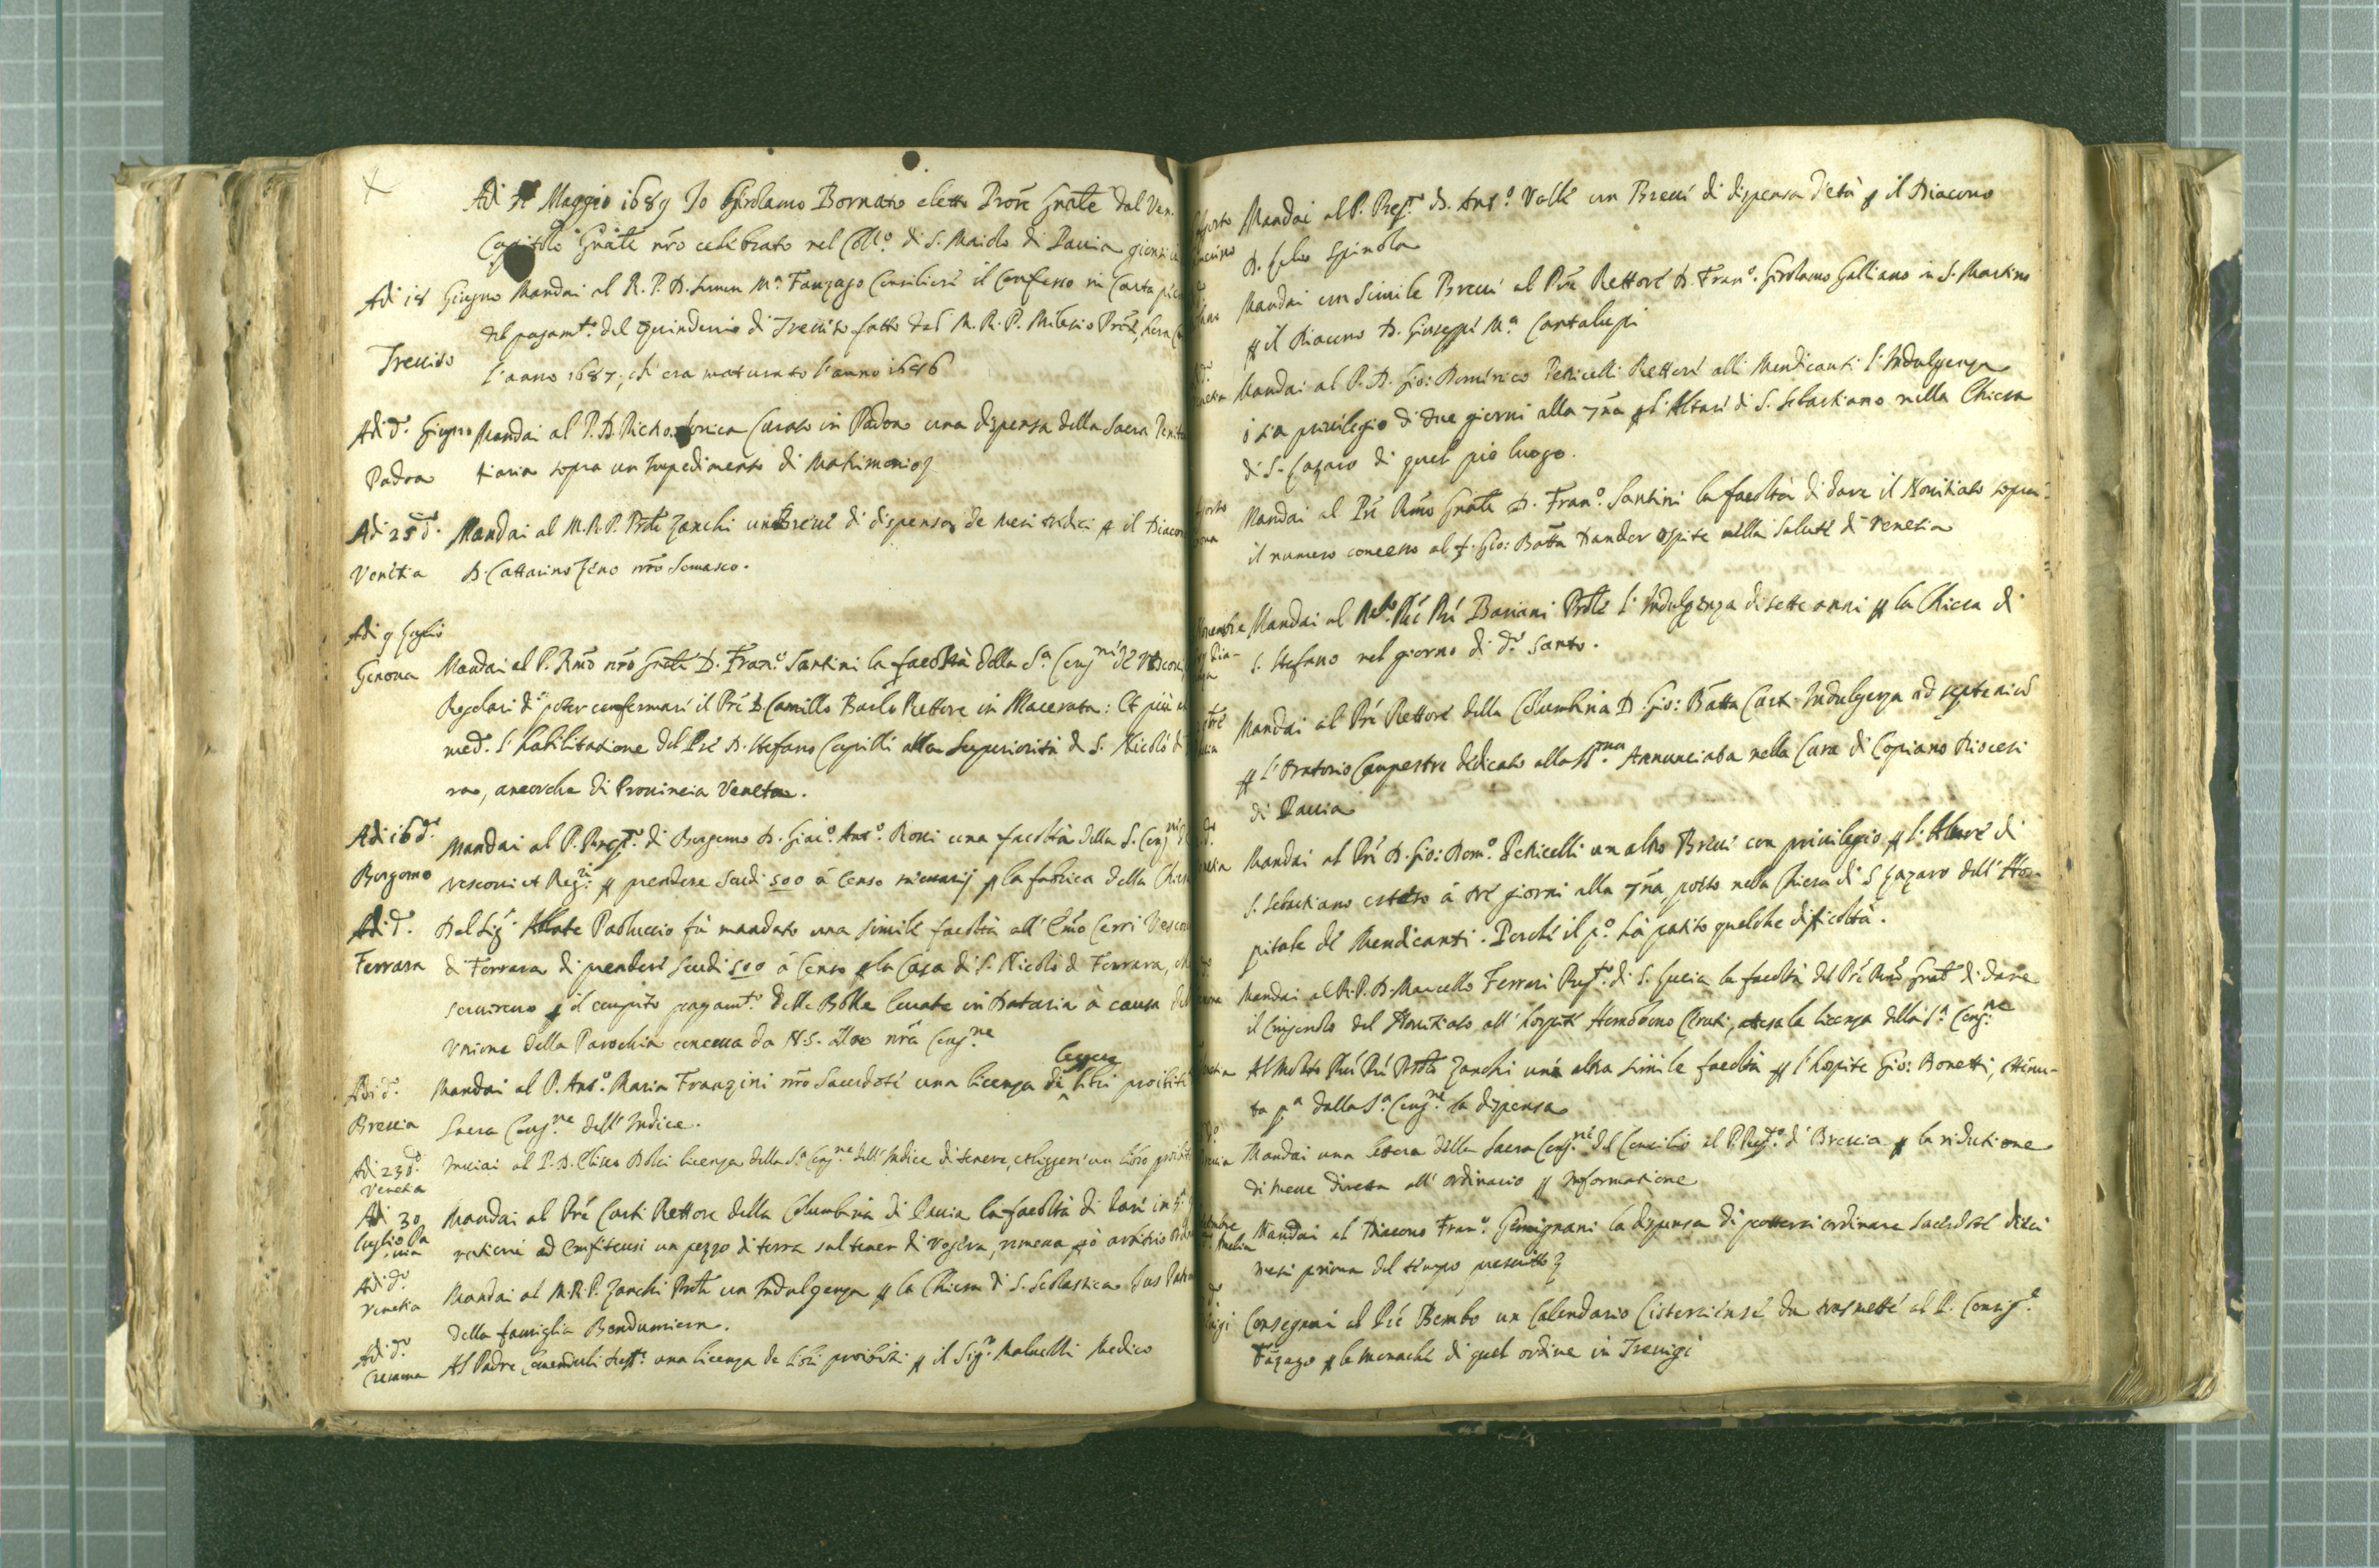 Adi Maggio 1689 Io Girolamo Bornato eletto Prõre Gñale dal Ven.
Capitolo Gñale nrõ celebrato nel Coll.º di S. Maiolo di Pauia
Adi 18 Giugno Mandai al R. P. D. M.ª Fanzago Consiliere il Confesso in Carta
Treuiso
del pagam.to del quindenio di Treuiso fatto dal M. R. P.
l'anno 1687, ch'era maturato l'anno 1686
Adi d.º Giugno Mandai al P. D. Curato in Padoa una dispensa della Sacra
Padoa tiaria sopra un Impedimento di Matrimonio
Adi 25 d.º Mandai al M. R. P. Prõle Zanchi un Breue di dispensa de mesi tredici p il Diacono
Venetia D. Cattarino Zeno nrõ Somasco.
Adi 9 Luglio
Genoua Mandai al P. Rmõ nrõ Gñale D. Fran.º Santini la facoltà della S.ª Cong.ne de Vescoui,
Regolari di poter confermare il Prẽ D. Camillo Rettore in Macerata: Et più
med. l'habilitatione del Prẽ D. Stefano alla Superiorità di S. Nicolò di
ra, ancorche di Prouincia Veneta.
Adi 16 d.º Mandai al P. Prep.to di Bergamo D. Giac.º Ant.º Rossi una facoltà della S. Cong.ne
Bergamo Vescoui et Reg.ri p prendere Scudi 500 à Censo p la fabrica della Chiesa
Adi d.º Dal Sig.r Abbate Paoluccio fù mandato una simile facoltà all'Emõ Cerri Vescouo
Ferrara di Ferrara di prendere Scudi 500 à Censo p la Casa di S. Nicolò di Ferrara,
seruirono p il compito pagam.to delle Bolle leuate in Dataria à causa
Vnione della Parochia concessa da N.S. alla nrã Cong.ne
leggere
Adi d.º Mandai al P. Ant.º Maria Franzini nrõ Sacerdote una licenza di libri proibiti
Brescia Sacra Cong.ne dell'Indice.
Adi 23 d.º Inuiai al P. D. Eliseo Dolci licenza della S.ª Cong.ne dell'Indice di tenere, et leggere un libro
Venetia
Adi 30 Mandai al Prẽ Conti Rettore della Colombina di Pauia la facoltà di dare in
luglio Pa
uia ad Emfiteusi un pezzo di terra sul tener di Voghera, arbitrio
Adi d.º
Venetia Mandai al M. R. P. Zanchi Prõle un Indulgenza p la Chiesa di S. Scolastica Jus
della famiglia Bondumiera.
Adi d.º
Cremona Al Padre una licenza de libri proibiti p il Sig.r Maluezzi Medico
Mandai al P. Prep.to D. Ant.º Valle un Breue di dispensa d'età p il Diacono
D. Spinola
Mandai un simile Breue al Prẽ Rettore D. Fran.º Girolamo Galliano in S. Martino
p il Diacono D. Giuseppe M.ª Cantalupi
Mandai al P. D. Gio: Domenico Peticelli Rettore alli Mendicanti l'Indulgenza
ò sia priuilegio di due giorni alla 7ña p l'Altare di S. Sebastiano nella Chiesa
di S. Lazaro di quel pio luogo.
Mandai al Prẽ Rmõ Gñale D. Fran.º Santini la facoltà di dare il Nouitiato sopra
il numero concesso al f. Gio: Batta Dander Ospite nella Salute di Venetia
Mandai al Prẽ Bariani Prõle l'Indulgenza di sette anni p la Chiesa di
S. Stefano nel giorno di d.º Santo.
Mandai al Prẽ Rettore della Colombina D. Gio: Batta Conti Indulgenza ad septenium
p l'Oratorio Campestre dedicato alla SS.ma Annunciata nella Cura di Copiano Diocesi
di Pauia
Mandai al Prẽ D. Gio: Dom.º Peticelli un altro Breue con priuilegio p l'Altare di
S. Sebastiano esteso à tre giorni alla 7ña, posto nella Chiesa di S. Lazaro dell'Hos-
pitale de Mendicanti. Perche il p.º hà patito qualche dificoltà.
Mandai al R. P. D. Marcello Ferrari Prep.to di S. Lucia la facoltà del Prẽ Rmõ Gñale di dare
il Cingendo del Nouitiato all'hospite Homobono, attesa la licenza della S.ª Cong.ne
Al Molto Rdõ Prẽ Prõle Zanchi una altra simile facoltà p l'hospite Gio: Bonetti, ottenu-
ta p.ª dalla S.ª Cong.ne la dispensa
Mandai una lettera della Sacra Cong.ne del Concilio al P. Prep.to di Brescia p la ridutione
di Messe diretta all'ordinario p Informatione
Mandai al Diacono Fran.º Gemignani la dispensa di potersi ordinare Sacerdote dieci
mesi prima del tempo prescritto
Consegnai al Prẽ Bembo un Calendario Cisterciense da trasmettere al P. Consig.e
Fãzago p le Monache di quel ordine in Treuigi